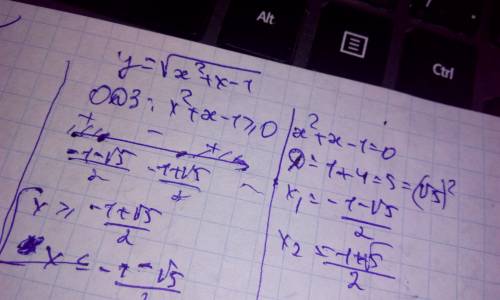 Alt
Ctrl
y = √(x²+x-1)
ОДЗ: x²+x-1 ≥ 0
+ - +
(-1-√5)/2 (-1+√5)/2
x ≥ (-1+√5)/2
x ≤ (-1-√5)/2
x²+x-1=0
D=1+4=5=(√5)²
x₁ = (-1-√5)/2
x₂ = (-1+√5)/2